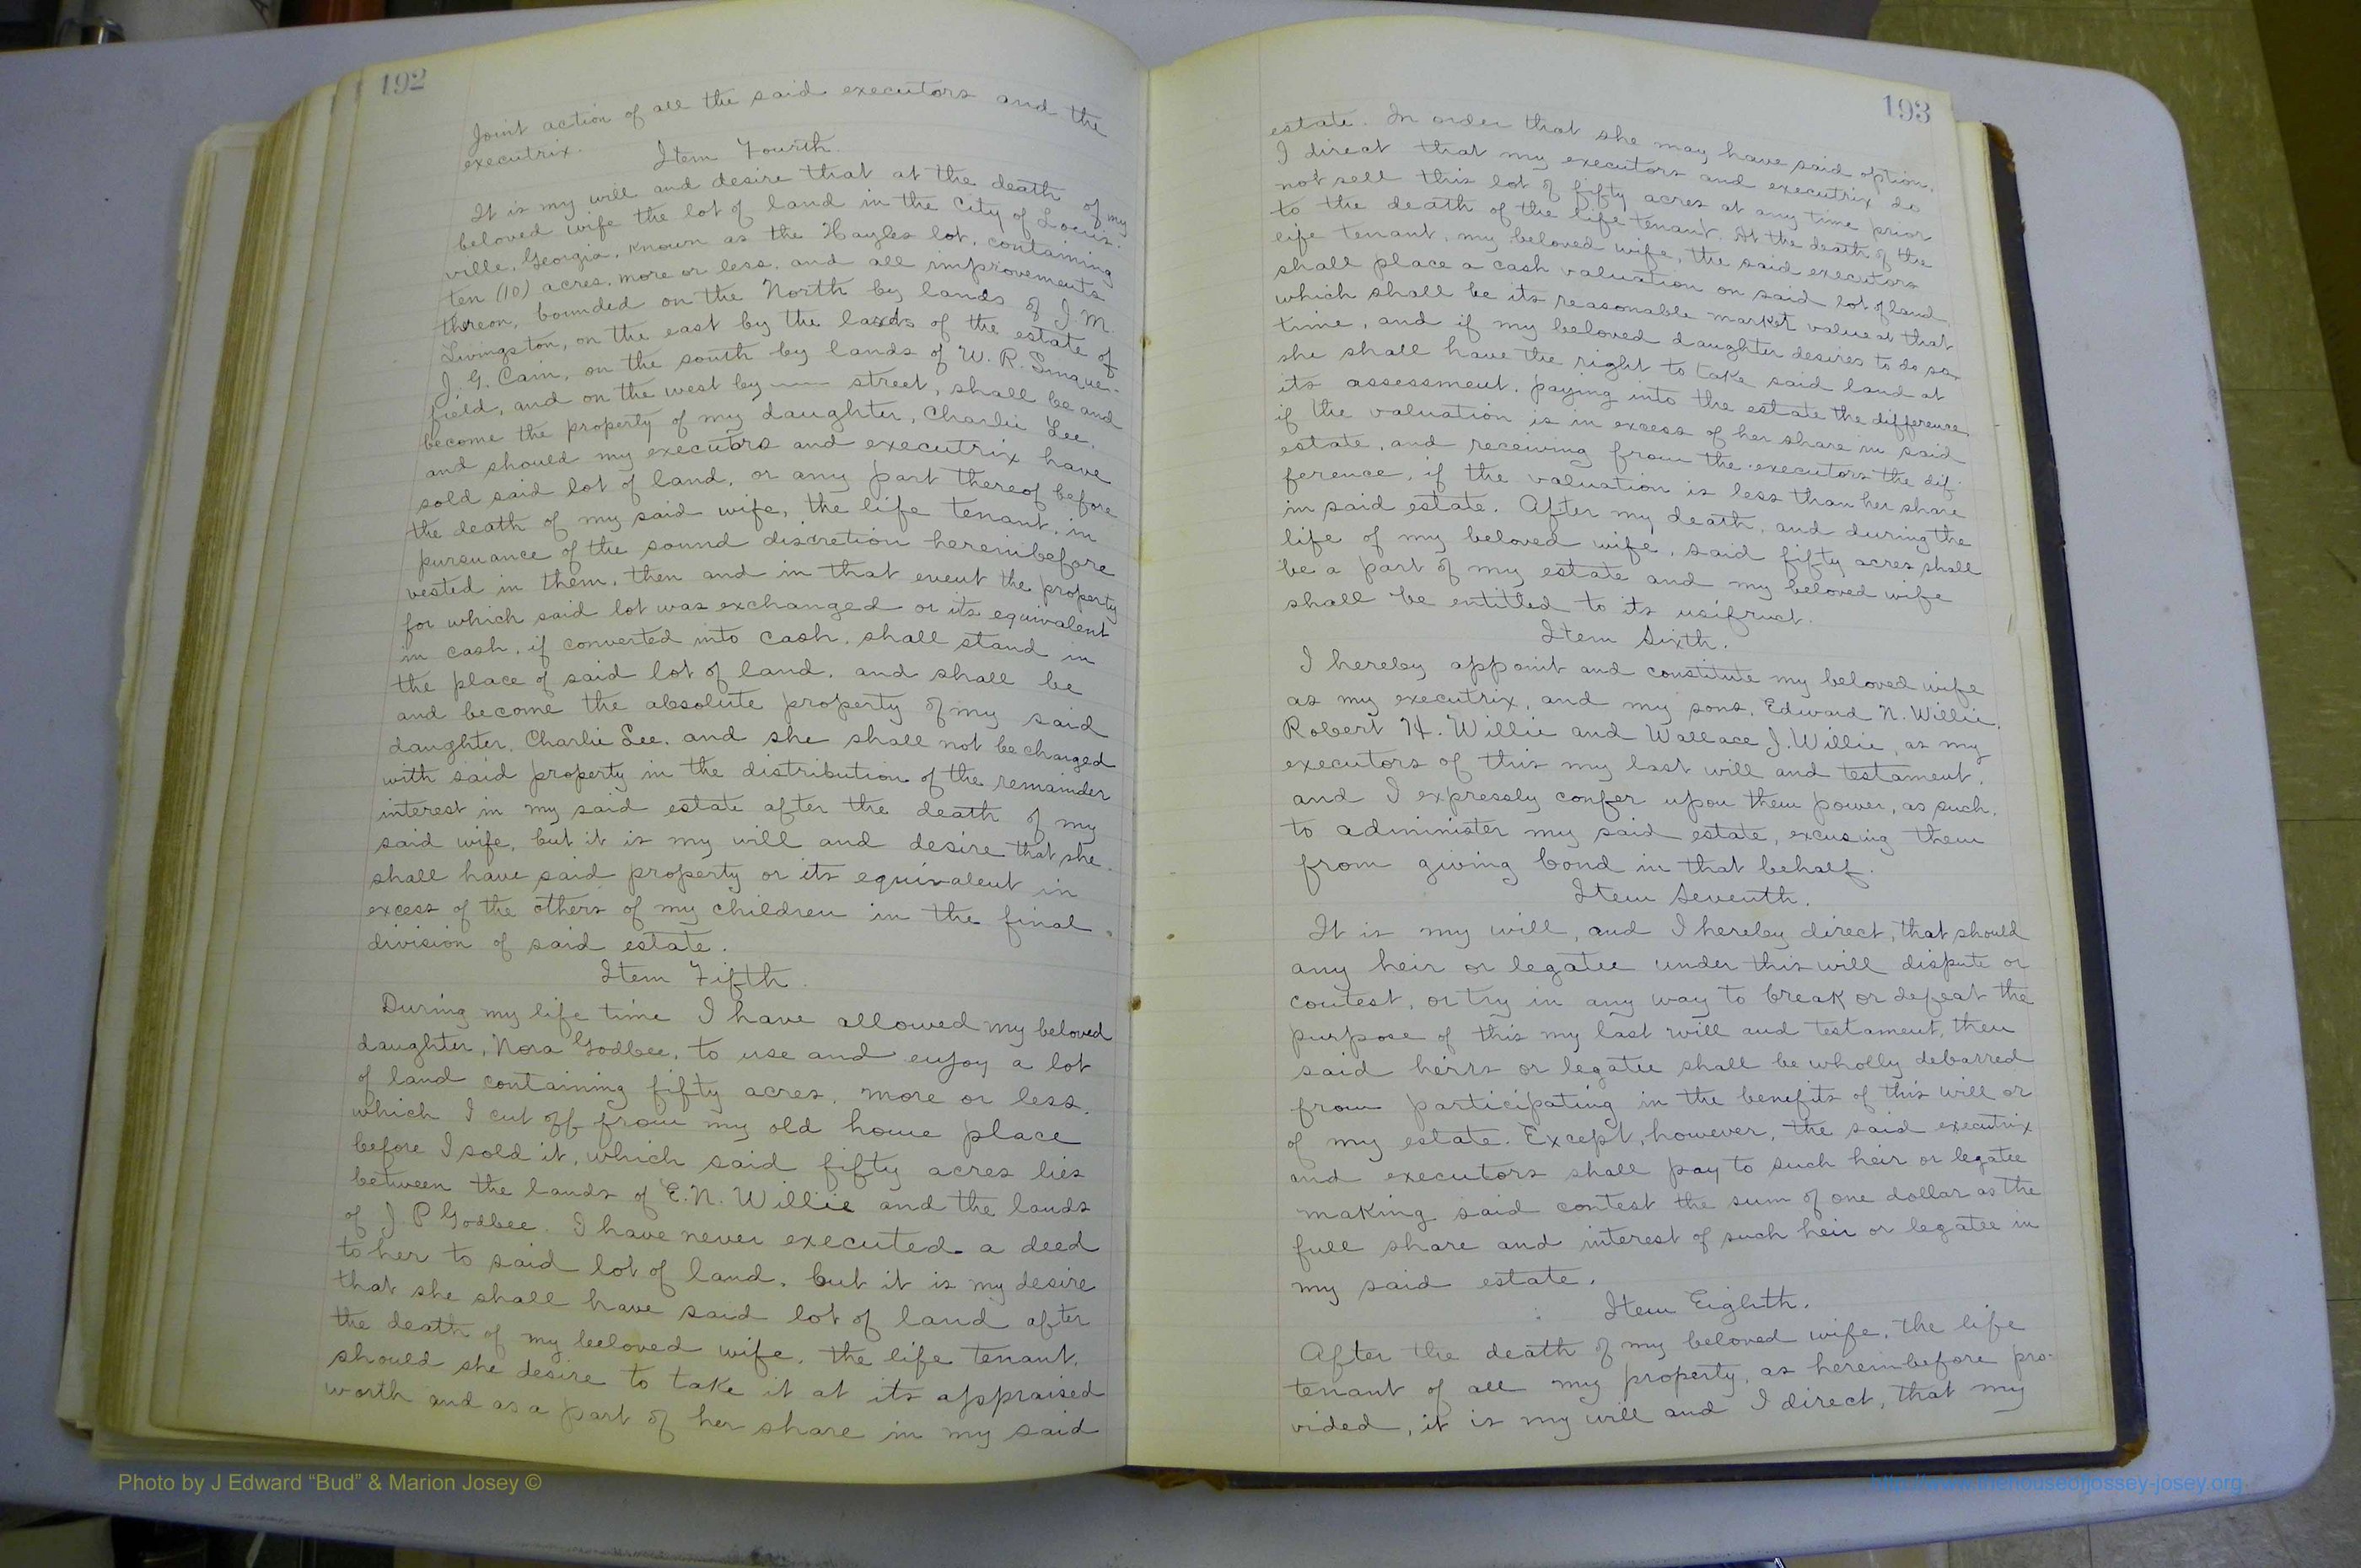 192
Joint action of all the said executors and the
executrix.
Item Fourth.
It is my will and desire that at the death of my
beloved wife the lot of land in the City of Louis-
ville, Georgia, known as the Hayles lot, containing
ten (10) acres, more or less, and all improvements
thereon, bounded on the North by lands of J. M.
Livingston, on the east by the lands of the estate of
J. G. Cain, on the south by lands of W. R. Sinque-
field, and on the west by —— street, shall be and
become the property of my daughter, Charlie Lee,
and should my executors and executrix have
sold said lot of land, or any part thereof before
the death of my said wife, the life tenant, in
pursuance of the sound discretion hereinbefore
vested in them, then and in that event the property
for which said lot was exchanged or its equivalent
in cash, if converted into cash, shall stand in
the place of said lot of land, and shall be
and become the absolute property of my said
daughter, Charlie Lee, and she shall not be charged
with said property in the distribution of the remainder
interest in my said estate after the death of my
said wife, but it is my will and desire that she
shall have said property or its equivalent in
excess of the others of my children in the final
division of said estate.
Item Fifth.
During my life time I have allowed my beloved
daughter, Nora Godbee, to use and enjoy a lot
of land containing fifty acres, more or less,
which I cut off from my old home place
before I sold it, which said fifty acres lies
between the lands of E. N. Willie and the lands
of J. P Godbee. I have never executed a deed
to her to said lot of land, but it is my desire
that she shall have said lot of land after
the death of my beloved wife, the life tenant,
should she desire to take it at its appraised
worth and as a part of her share in my said
193
estate. In order that she may have said option,
I direct that my executors and executrix do
not sell this lot of fifty acres at any time prior
to the death of the life tenant. At the death of the
life tenant, my beloved wife, the said executors
shall place a cash valuation on said lot of land,
which shall be its reasonable market value at that
time, and if my beloved daughter desires to do so,
she shall have the right to take said land at
its assessment, paying into the estate the difference,
if the valuation is in excess of her share in said
estate, and receiving from the executors the dif-
ference, if the valuation is less than her share
in said estate. After my death, and during the
life of my beloved wife, said fifty acres shall
be a part of my estate and my beloved wife
shall be entitled to its usifruct.
Item Sixth.
I hereby appoint and constitute my beloved wife
as my executrix, and my sons, Edward N. Willie,
Robert H. Willie and Wallace J. Willie, as my
executors of this my last will and testament,
and I expressly confer upon them power, as such,
to administer my said estate, excusing them
from giving bond in that behalf.
Item Seventh.
It is my will, and I hereby direct, that should
any heir or legatee under this will dispute or
contest, or try in any way to break or defeat the
purpose of this my last will and testament, then
said heirs or legatee shall be wholly debarred
from participating in the benefits of this will or
of my estate. Except, however, the said executrix
and executors shall pay to such heir or legatee
making said contest the sum of one dollar as the
full share and interest of such heir or legatee in
my said estate.
Item Eighth.
After the death of my beloved wife, the life
tenant of all my property, as hereinbefore pro-
vided, it is my will and I direct, that my
Photo by J Edward “Bud” & Marion Josey ©
http://www.thehouseofjossey-josey.org